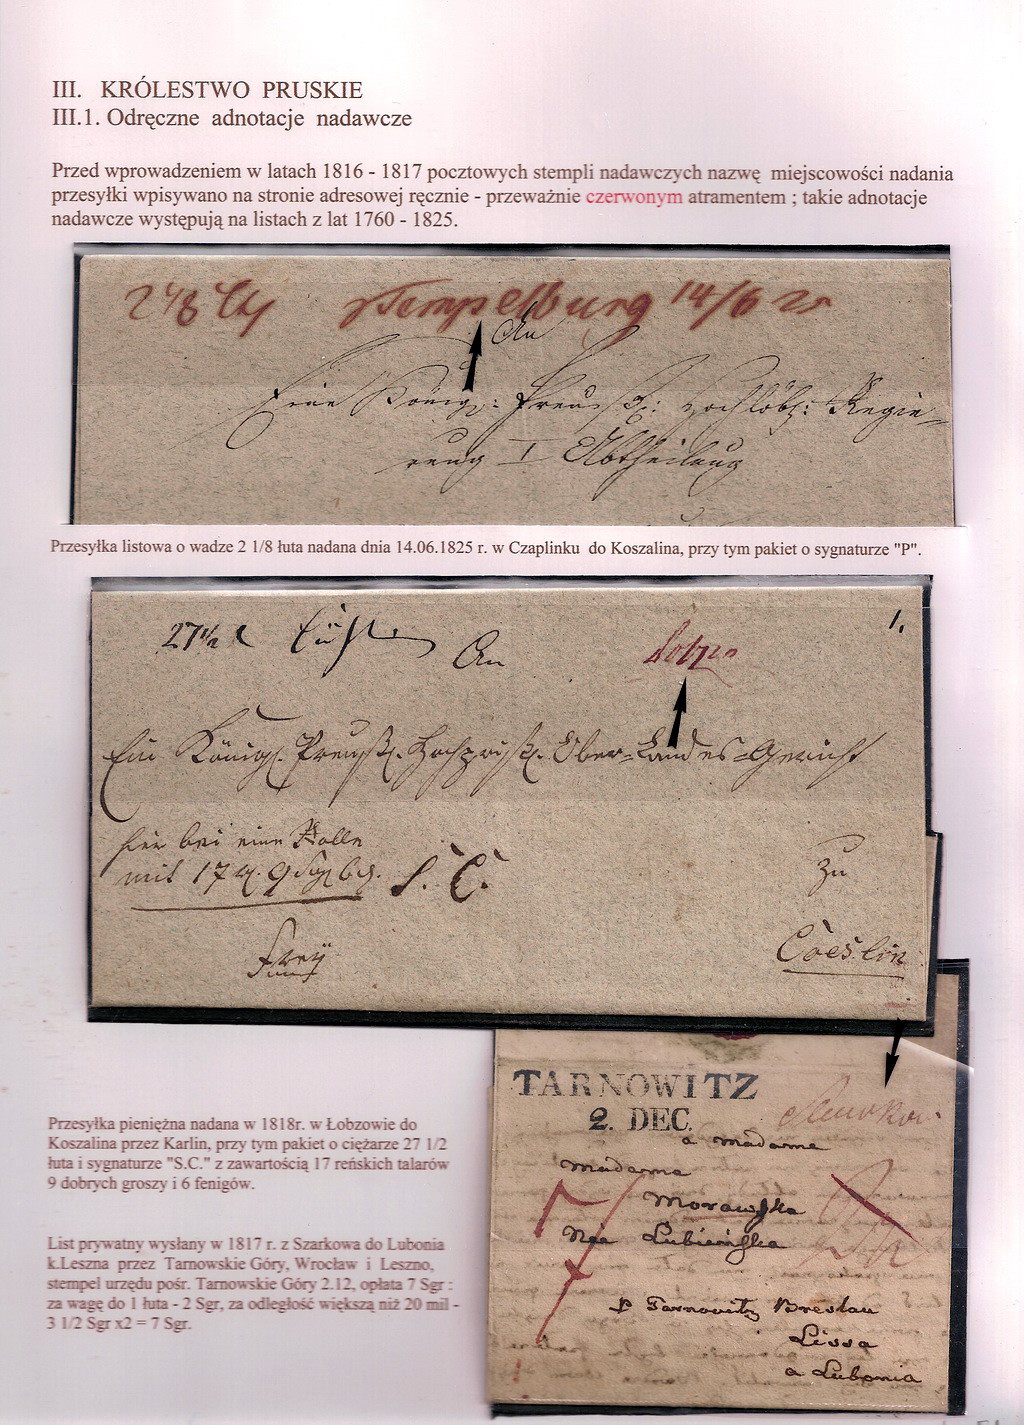 III. KRÓLESTWO PRUSKIE
III.1. Odręczne adnotacje nadawcze
Przed wprowadzeniem w latach 1816 - 1817 pocztowych stempli nadawczych nazwę miejscowości nadania
przesyłki wpisywano na stronie adresowej ręcznie - przeważnie czerwonym atramentem ; takie adnotacje
nadawcze występują na listach z lat 1760 - 1825.
Tempelburg 14/6 25
An
Eine Königl: Preuß: Hochlöbl: Regie=
rung I Abtheilung
Przesyłka listowa o wadze 2 1/8 łuta nadana dnia 14.06.1825 r. w Czaplinku do Koszalina, przy tym pakiet o sygnaturze "P".
27 1/2
1.
An
Ein Königl. Preuß. Ober=Landes=Gericht
hier bei eine Rolle
mit 17
S. C.
zu
Frey
Coeslin
TARNOWITZ
2. DEC.
a Madame
Madame
Morawska
Née Lubieńska
p Tarnowitz Breslau
Lissa
a Lubonia
Przesyłka pieniężna nadana w 1818r. w Łobzowie do
Koszalina przez Karlin, przy tym pakiet o ciężarze 27 1/2
łuta i sygnaturze "S.C." z zawartością 17 reńskich talarów
9 dobrych groszy i 6 fenigów.
List prywatny wysłany w 1817 r. z Szarkowa do Lubonia
k.Leszna przez Tarnowskie Góry, Wrocław i Leszno,
stempel urzędu pośr. Tarnowskie Góry 2.12, opłata 7 Sgr :
za wagę do 1 łuta - 2 Sgr, za odległość większą niż 20 mil -
3 1/2 Sgr x2 = 7 Sgr.